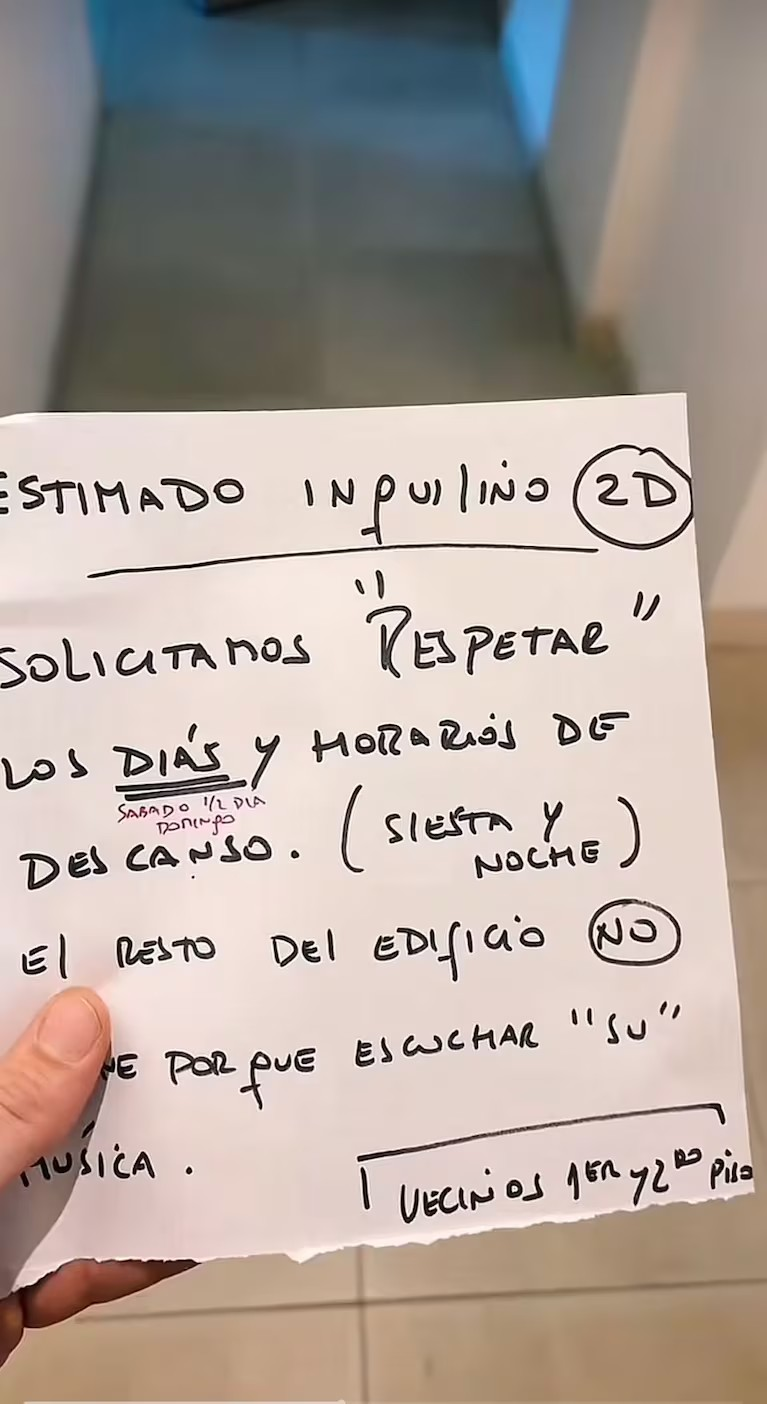 ESTIMADO INQUILINO 2D
SOLICITAMOS "RESPETAR"
LOS DIÁS Y HORARIOS DE
SABADO 1/2 DIA
DOMINGO
DESCANSO. (SIESTA Y
NOCHE)
El RESTO DEl EDIfICIO NO
POR QUE ESCUCHAR "SU"
MÚSICA.
VECINOS 1ER y 2DO PISO